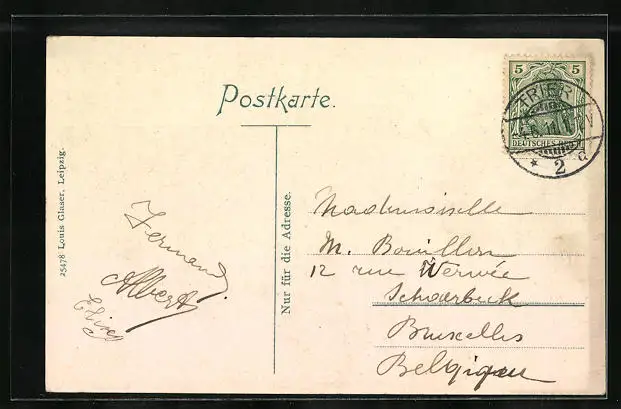 Postkarte.
5 5
TRIER
11
DEUTSCHES REICH
* 2 d
25478 Louis Glaser, Leipzig.
Nur für die Adresse.
Fernand.
Albert
Mademoiselle
M. Bouillon
12 rue Verwée
Schaerbeck
Bruxelles
Belgique